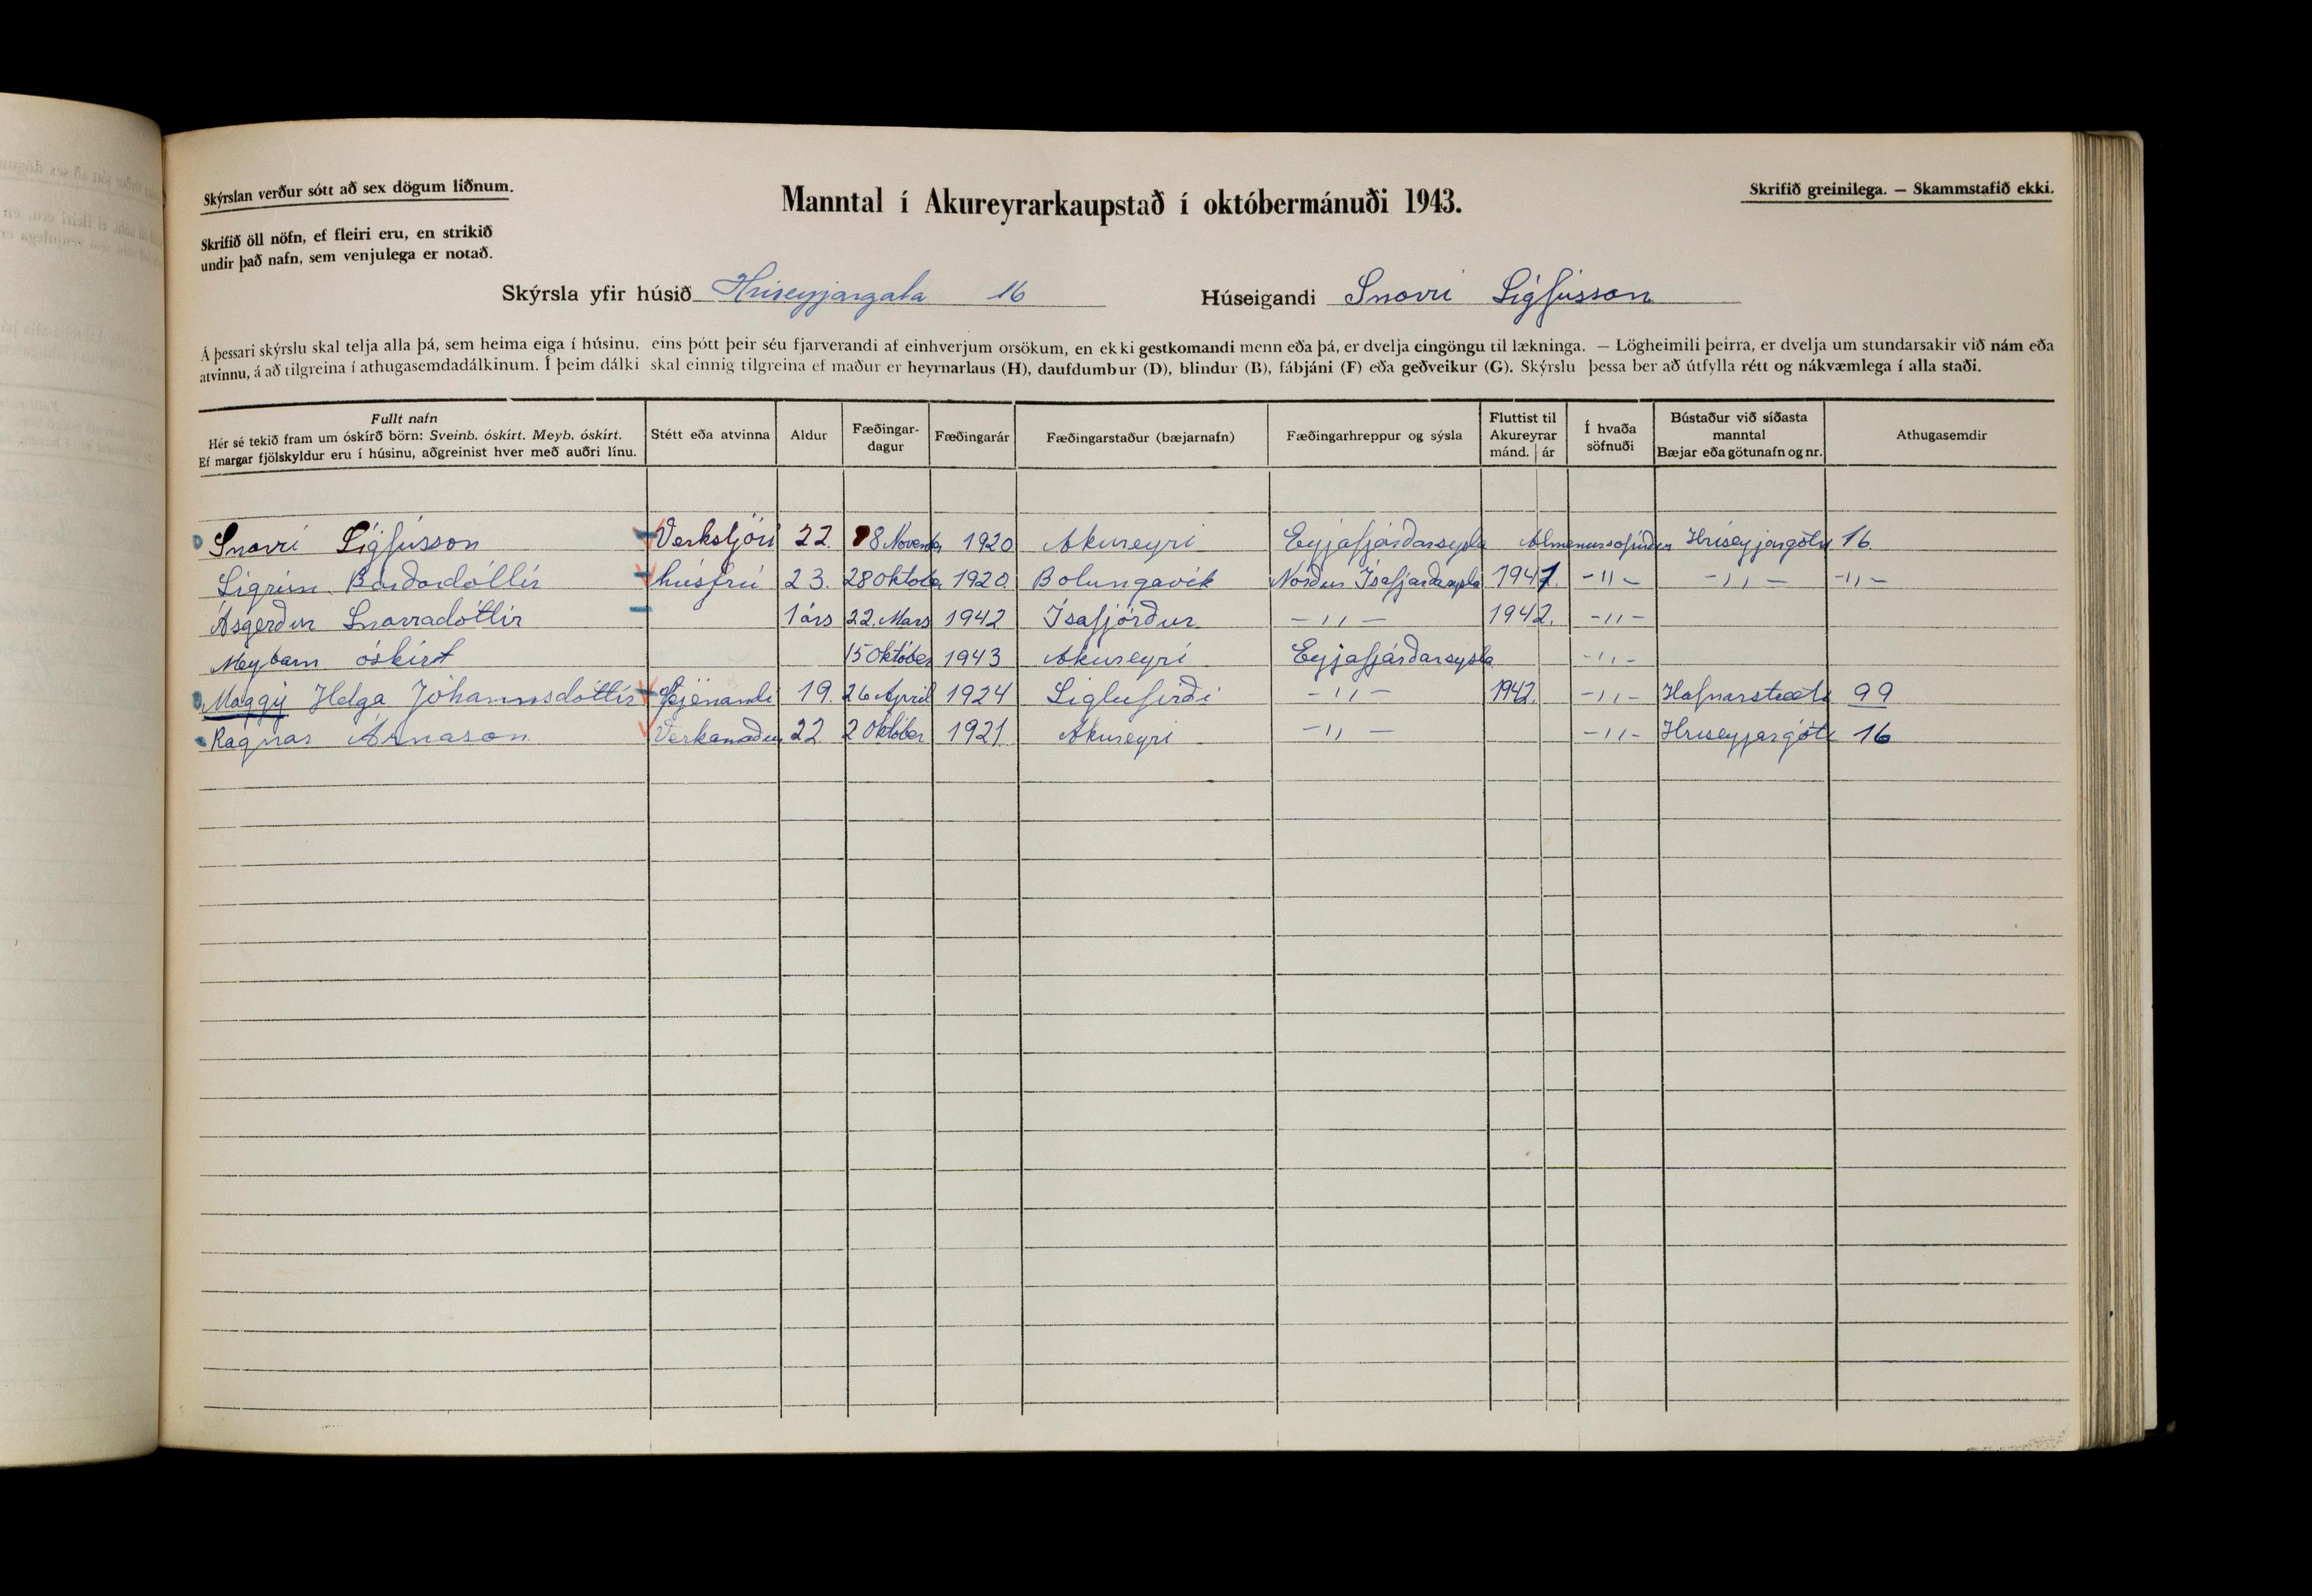 Skýrslan verður sótt að sex dögum liðnum.
Manntal í Akureyrarkaupstað í októbermánuði 1943.
Skrifið greinilega. — Skammstafið ekki.
Skrifið öll nöfn, ef fleiri eru, en strikið
undir það nafn, sem venjulega er notað.
Skýrsla yfir húsið Hriseyjargata 16 Húseigandi Snorri Sigfússon
Á þessari skýrslu skal telja alla þá, sem heima eiga í húsinu, eins þótt þeir séu fjarverandi af einhverjum orsökum, en ekki gestkomandi menn eða þá, er dvelja eingöngu til lækninga. — Lögheimili þeirra, er dvelja um stundarsakir við nám eða
atvinnu, á að tilgreina í athugasemdadálkinum. Í þeim dálki skal einnig tilgreina ef maður er heyrnarlaus (H), daufdumbur (D), blindur (B), fábjáni (F) eða geðveikur (G). Skýrslu þessa ber að útfylla rétt og nákvæmlega í alla staði.
Fullt nafn
Hér sé tekið fram um óskírð börn: Sveinb. óskírt. Meyb. óskírt.
Ef margar fjölskyldur eru í húsinu, aðgreinist hver með auðri línu.
Stétt eða atvinna
Aldur
Fæðingar-
dagur
Fæðingarár
Fæðingarstaður (bæjarnafn)
Fæðingarhreppur og sýsla
Fluttist til
Akureyrar
mánd. ár
Í hvaða
söfnuði
Bústaður við síðasta
manntal
Bæjar eða götunafn og nr.
Athugasemdir
Snorri Sigfússon Verkstjóri 22. 8 Novemb 1920 Akureyri Eyjafjárðarsysla Hriseyjargötu 16.
Sigrún Bárðadóttir húsfrú 23. 28 Oktobe 1920. Bolungavik Norður Ísafjarðarsysla 1941. -"- -"- -"-
Ásgerður Snorradóttir 1 árs 22. Mars 1942 Ísafjörður -"- 1942. -"-
Meybarn óskirt 15 Október 1943 Akureyri Eyjafjárðarsysla -"-
Maggý Helga Jóhannsdóttir Þjónandi 19. 26 April 1924 Siglufirði -"- 1942. -"- Hafnarstræti 99
Ragnar Árnason Verkamaður 22. 2 Október 1921 Akureyri -"- -"- Hriseyjargöt 16